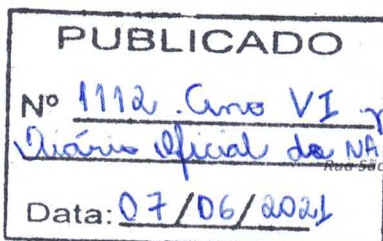 PUBLICADO
Nº 1112. Ano VI
Diário Oficial da NA
Rua São
Data: 07/06/2021